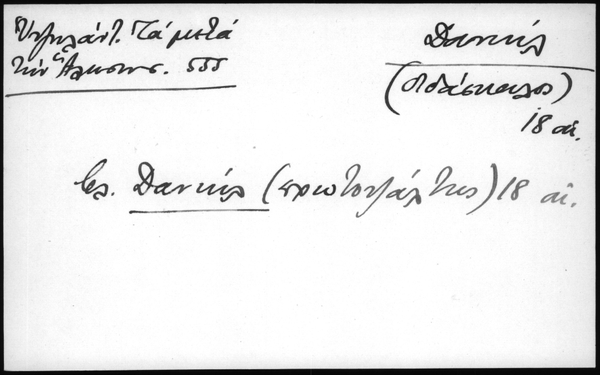 Ὑψηλάντ. Τά μετά
τήν Ἅλωσιν. 555
Δανιήλ
(διδάσκαλος)
18 αἰ.
βλ. Δανιήλ (πρωτοψάλτης) 18 αἰ.